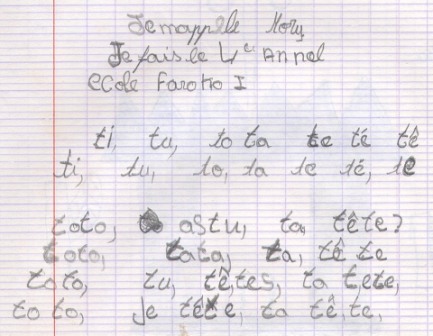 Jemappelle Mory
Je fais le 4e Annel
ecole Farotio I
ti, tu, to ta te té tê
ti, tu, to, ta te té, te
toto, astu, ta, tête?
toto, tata, ta, tê te
toto, tu, tê,tes, ta t,ete,
to to, je tête, ta tê,te,